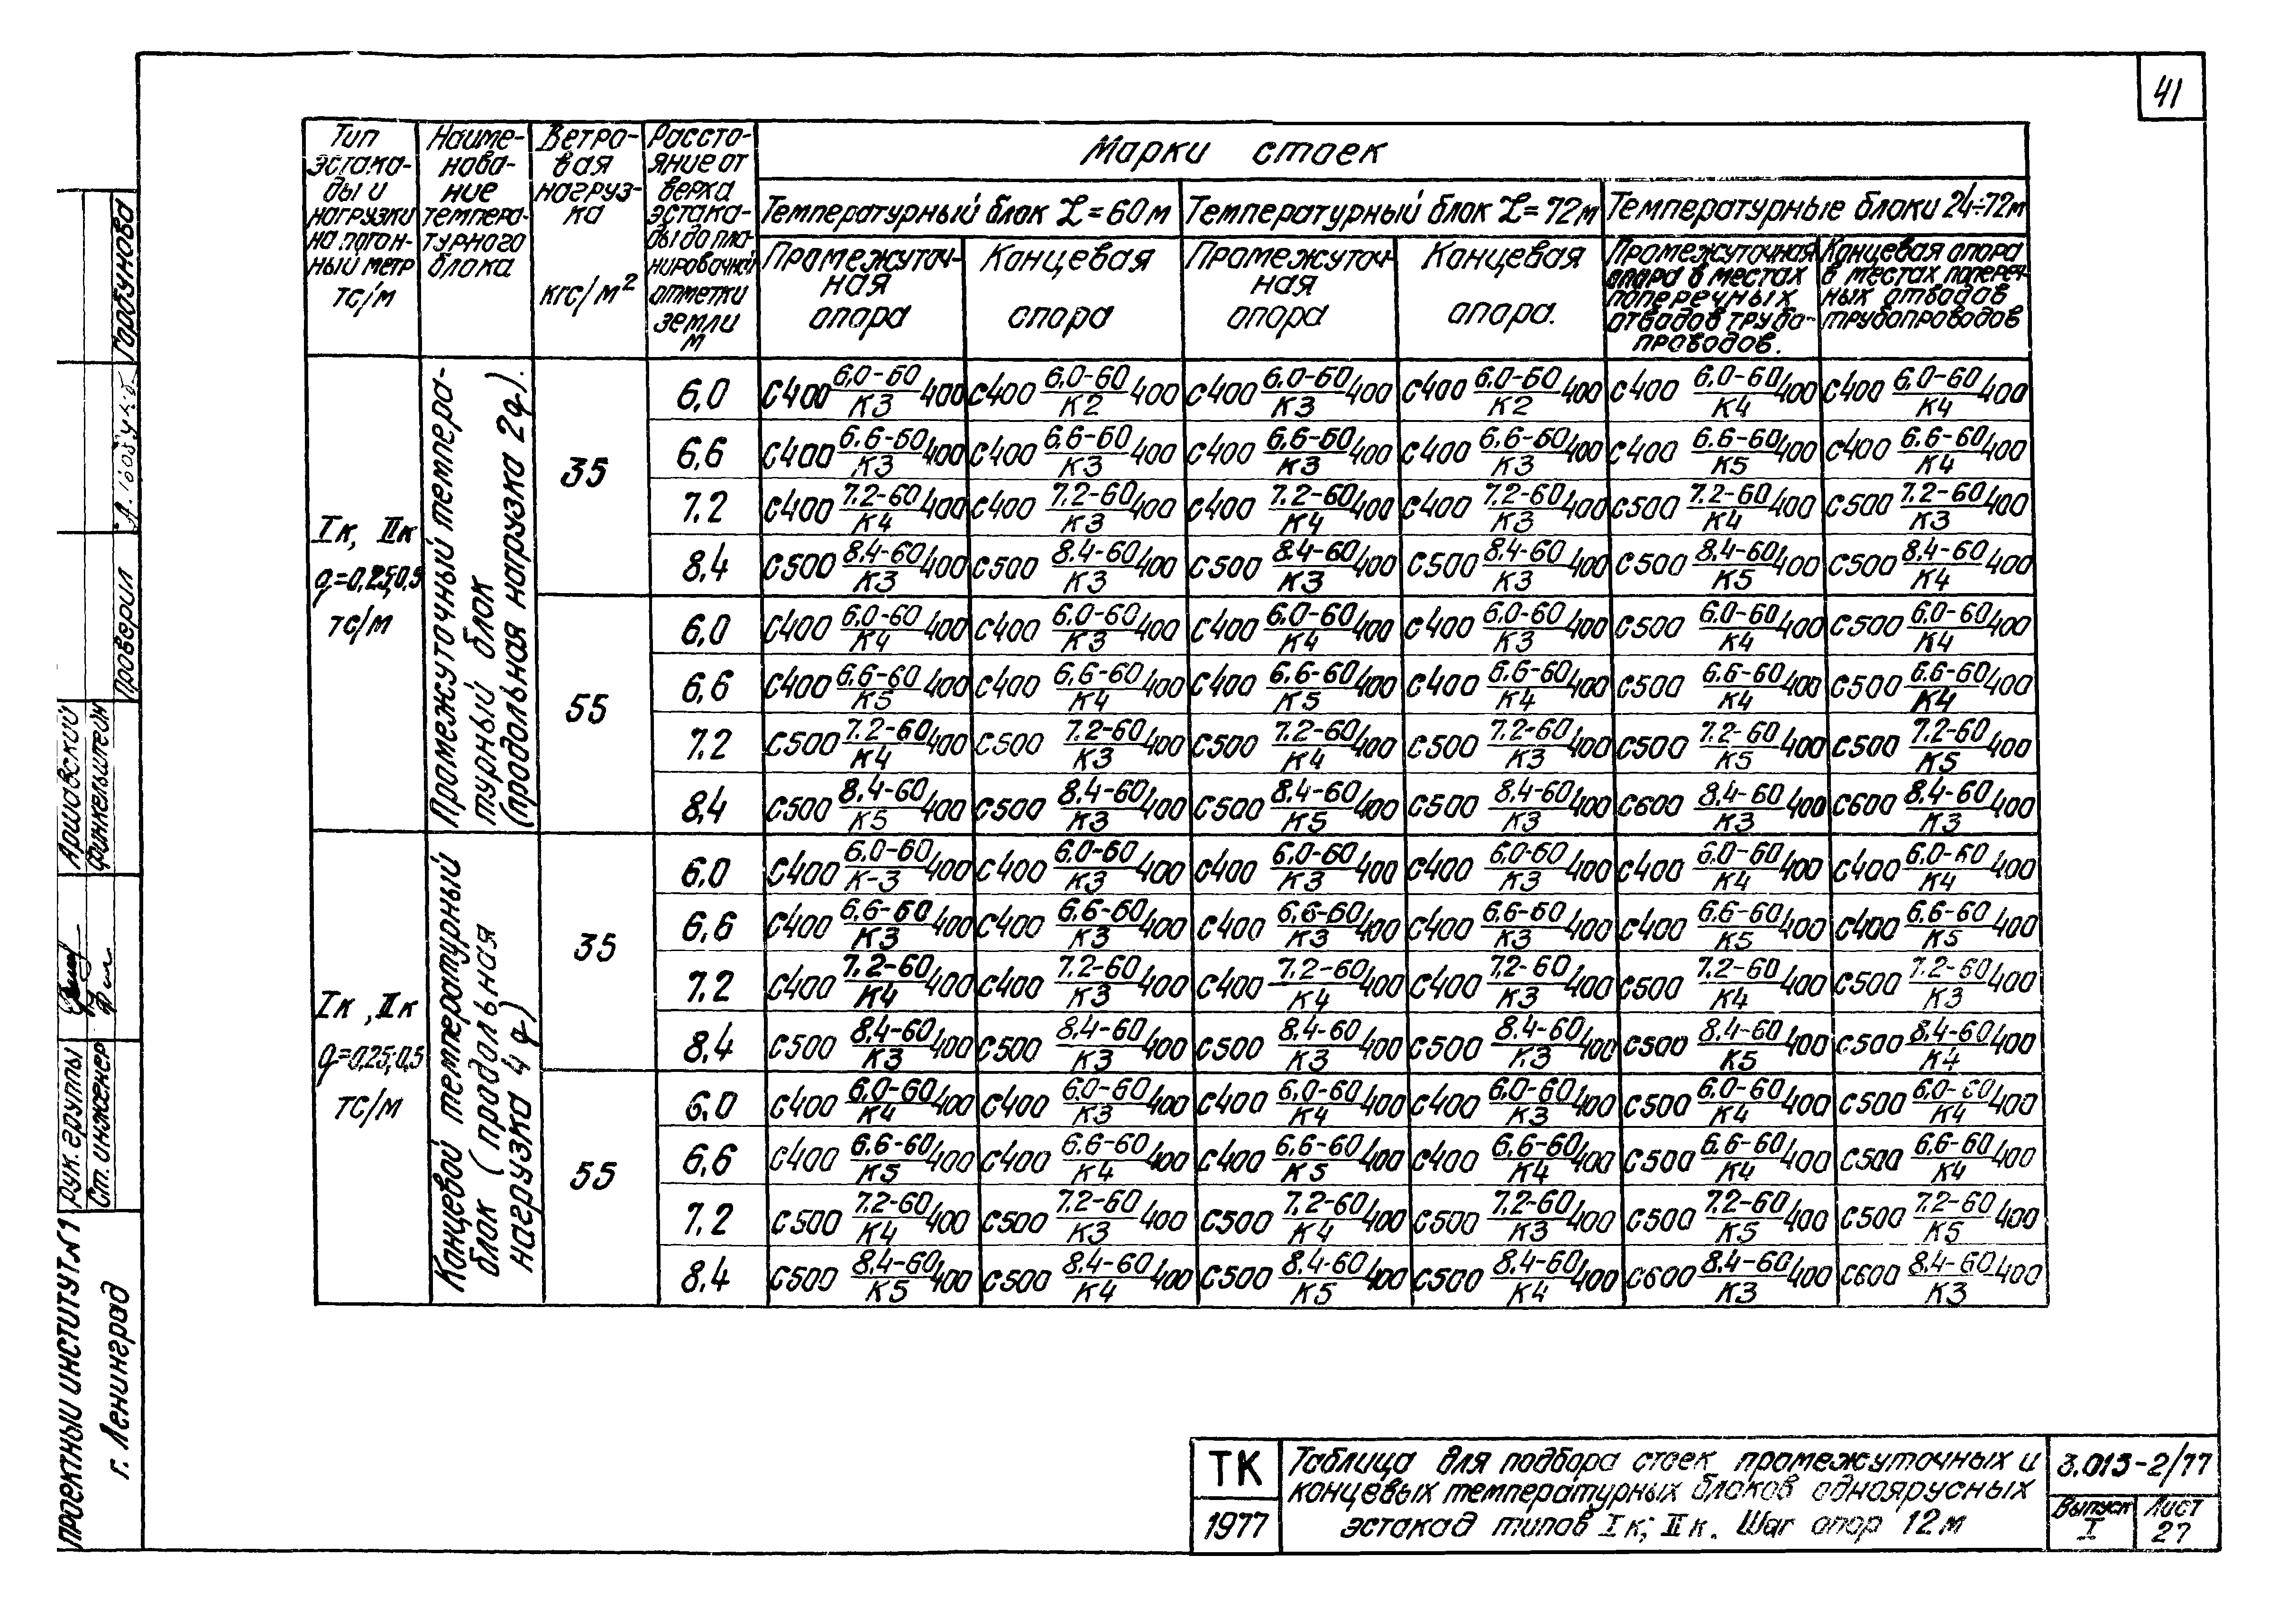 41
Тип эстака-ды и нагрузки на погон-ный метр тс/м
Наиме-нова-ние темпера-турного блока
Ветро-вая нагруз-ка кгс/м²
Рассто-яние от верха эстака-ды до пла-нировочной отметки земли м
Марки стоек
Температурный блок L=60м
Температурный блок L=72м
Температурные блоки 24÷72м
Промежуточ-ная опора
Концевая опора
Промежуточ-ная опора
Концевая опора.
Промежуточная опора в местах поперечных отводов трубо-проводов.
Концевая опора в местах попереч-ных отводов трубопроводов
Iк, IIк q=0,25;0,5 тс/м
Промежуточный темпера-турный блок (продольная нагрузка 2q).
35
6,0 С400 6,0-60/К3 400 С400 6,0-60/К2 400 С400 6,0-60/К3 400 С400 6,0-60/К2 400 С400 6,0-60/К4 400 С400 6,0-60/К4 400
6,6 С400 6,6-60/К3 400 С400 6,6-60/К3 400 С400 6,6-60/К3 400 С400 6,6-60/К3 400 С400 6,6-60/К5 400 С400 6,6-60/К4 400
7.2 С400 7.2-60/К4 400 С400 7.2-60/К3 400 С400 7.2-60/К4 400 С400 7.2-60/К3 400 С500 7.2-60/К4 400 С500 7.2-60/К3 400
8,4 С500 8.4-60/К3 400 С500 8.4-60/К3 400 С500 8.4-60/К3 400 С500 8.4-60/К3 400 С500 8.4-60/К5 400 С500 8.4-60/К4 400
55
6,0 С400 6.0-60/К4 400 С400 6.0-60/К3 400 С400 6.0-60/К4 400 С400 6.0-60/К3 400 С500 6.0-60/К4 400 С500 6.0-60/К4 400
6,6 С400 6.6-60/К5 400 С400 6.6-60/К4 400 С400 6.6-60/К5 400 С400 6.6-60/К4 400 С500 6.6-60/К4 400 С500 6.6-60/К4 400
7.2 С500 7.2-60/К4 400 С500 7.2-60/К3 400 С500 7.2-60/К4 400 С500 7.2-60/К3 400 С500 7.2-60/К5 400 С500 7.2-60/К5 400
8,4 С500 8.4-60/К5 400 С500 8.4-60/К3 400 С500 8.4-60/К5 400 С500 8.4-60/К3 400 С600 8.4-60/К3 400 С600 8.4-60/К3 400
Iк, IIк q=0,25;0,5 тс/м
Концевой температурный блок (продольная нагрузка 4q)
35
6,0 С400 6.0-60/К-3 400 С400 6.0-60/К3 400 С400 6.0-60/К3 400 С400 6.0-60/К3 400 С400 6.0-60/К4 400 С400 6.0-60/К4 400
6,6 С400 6.6-60/К3 400 С400 6.6-60/К3 400 С400 6.6-60/К3 400 С400 6.6-60/К3 400 С400 6.6-60/К5 400 С400 6.6-60/К5 400
7.2 С400 7.2-60/К4 400 С400 7.2-60/К3 400 С400 7.2-60/К4 400 С400 7.2-60/К3 400 С500 7.2-60/К4 400 С500 7.2-60/К3 400
8,4 С500 8.4-60/К3 400 С500 8.4-60/К3 400 С500 8.4-60/К3 400 С500 8.4-60/К3 400 С500 8.4-60/К5 400 С500 8.4-60/К4 400
55
6,0 С400 6.0-60/К4 400 С400 6.0-60/К3 400 С400 6.0-60/К4 400 С400 6.0-60/К3 400 С500 6.0-60/К4 400 С500 6.0-60/К4 400
6,6 С400 6.6-60/К5 400 С400 6.6-60/К4 400 С400 6.6-60/К5 400 С400 6.6-60/К4 400 С500 6.6-60/К4 400 С500 6.6-60/К4 400
7.2 С500 7.2-60/К4 400 С500 7.2-60/К3 400 С500 7.2-60/К4 400 С500 7.2-60/К3 400 С500 7.2-60/К5 400 С500 7.2-60/К5 400
8,4 С500 8.4-60/К5 400 С500 8.4-60/К4 400 С500 8.4-60/К5 400 С500 8.4-60/К4 400 С600 8.4-60/К3 400 С600 8.4-60/К3 400
Горбунова
Проверил
Аршавский
Финкельштейн
Рук. группы
Ст. инженер
Проектный институт №1
г. Ленинград
ТК
1977
Таблица для подбора стоек промежуточных и
концевых температурных блоков одноярусных
эстакад типов Iк; IIк. Шаг опор 12м
3.015-2/77
Выпуск I
Лист 27